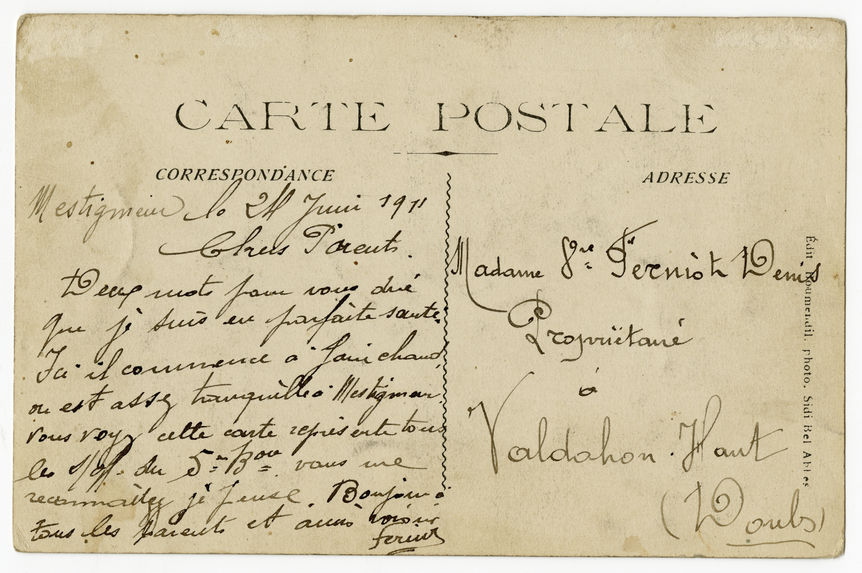 CARTE POSTALE
CORRESPONDANCE
Mestigmeur le 24 Juin 1911
Chers Parents.
Deux mots pour vous dire
que je suis en parfaite santé.
Ici il commence à faire chaud
on est assez tranquille à Mestigmeur
vous voyez cette carte représente tous
les S/off. du 5e Bon vous me
reconnaîtrez je pense. Bonjour à
tous les parents et amis
ADRESSE
Madame Vve Ferniot Denis
Propriétaire
à
Valdahon-Haut
(Doubs)
Édit. Boumendil, photo, Sidi Bel Abbes